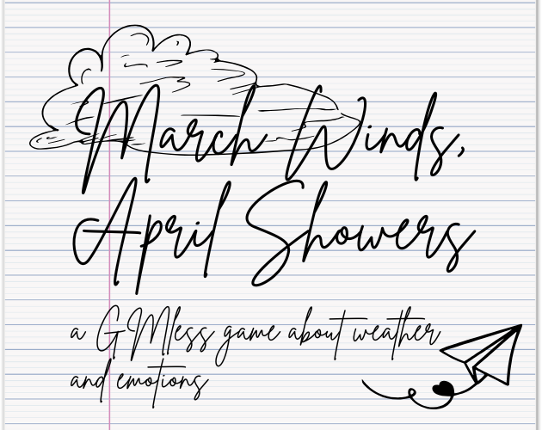 March Winds,
April Showers
a GMless game about weather
and emotions